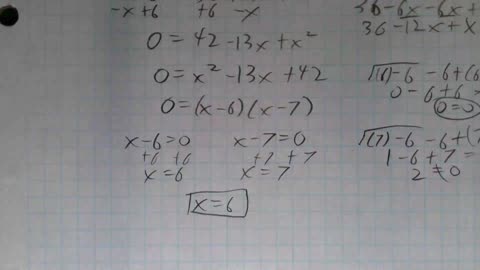 -x+6 +6 -x
0 = 42 - 13x + x²
0 = x² - 13x + 42
0 = (x-6)(x-7)
x-6=0 x-7=0
+6 +6 +7 +7
x=6 x=7
x=6
36-6x-6x+
36-12x+x
√(6)-6 -6+(6
0-6+6
0=0
√(7)-6 -6+(7
1-6+7 =
2≠0